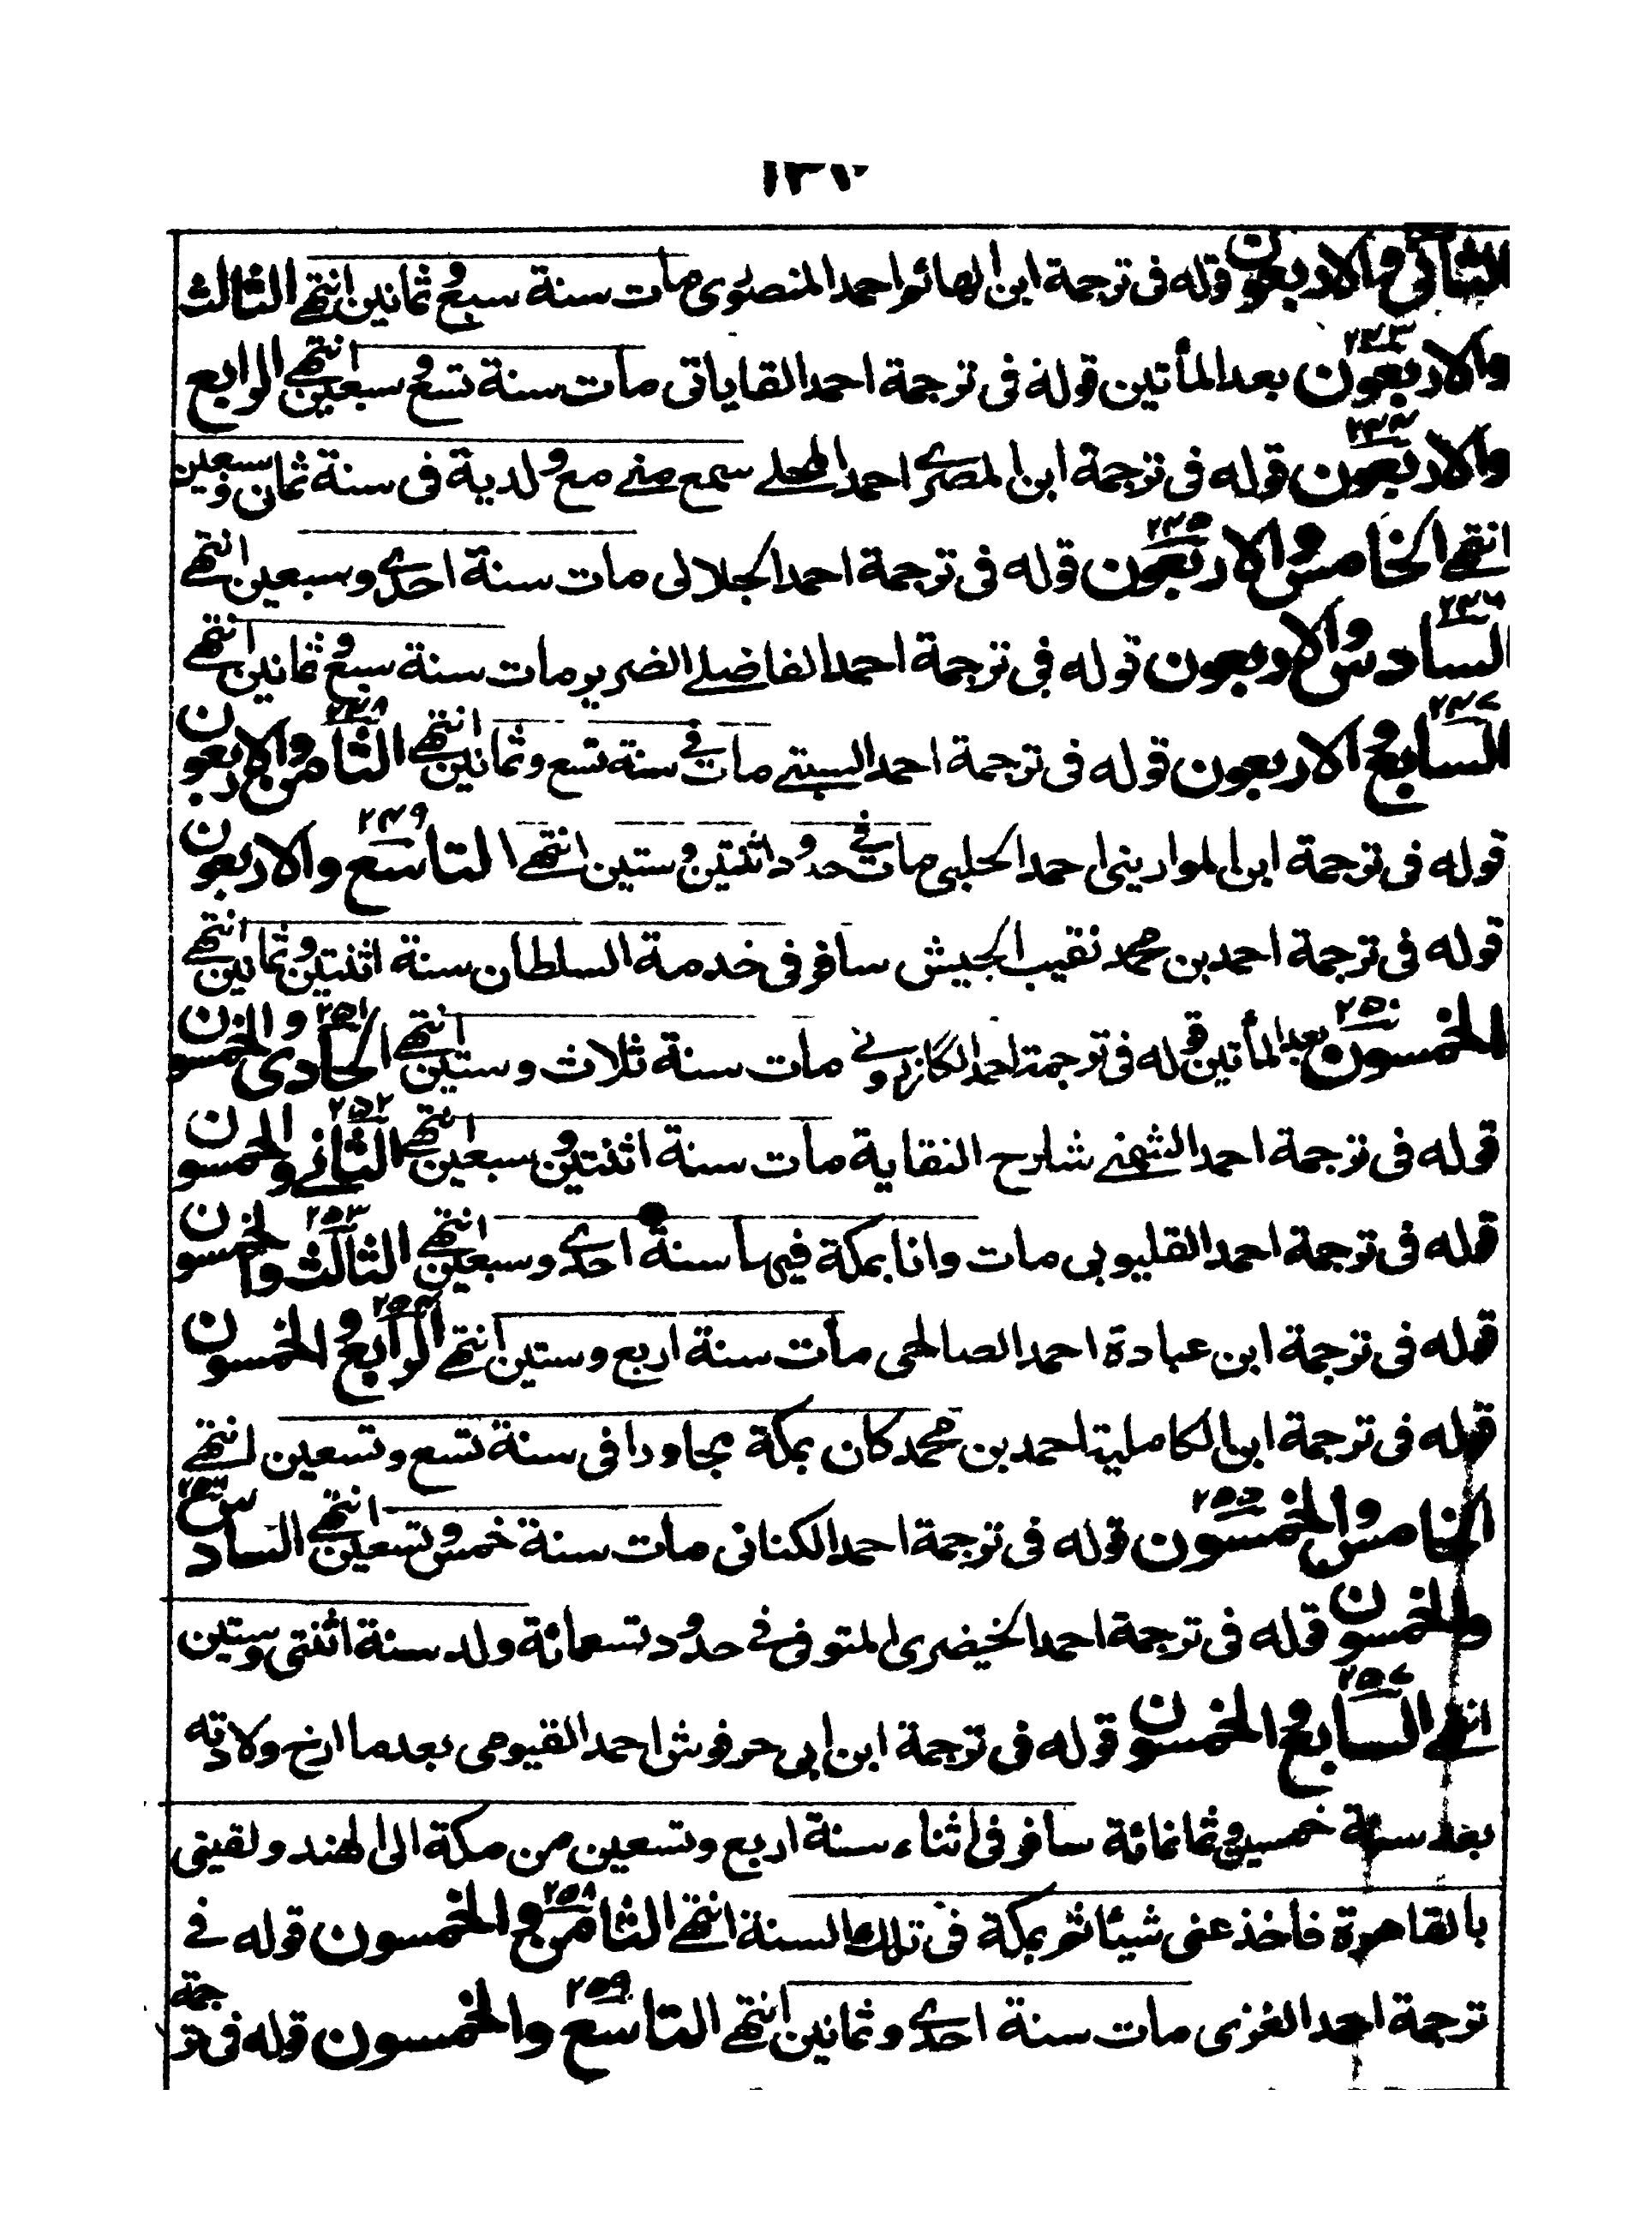 ١٣٧
الثاني والاربعون قوله فى ترجمة ابن الهائم احمد المنصورى مات سنة سبع وثمانين انتهے الثالث
٢٤٣
والاربعون بعد المأتين قوله فى ترجمة احمد القاياتى مات سنة تسع وسبعين انتهے الرابع
٢٤٤
والاربعون قوله فى ترجمة ابن المصرے احمد المحلے سمع منے مع ولديه فى سنة ثمان وسبعين
٢٤٥
انتهے الخامس والاربعون قوله فى ترجمة احمد الجلالى مات سنة احدے وسبعين انتهے
٢٤٦
السادس والاربعون قوله فى ترجمة احمد الفاضلے الضرير مات سنة سبع وثمانين انتهے
٢٤٧ ٢٤٨
السابع والاربعون قوله فى ترجمة احمد البستے مات فے سنة تسع وثمانين انتهے الثامن والاربعون
٢٤٩
قوله فى ترجمة ابن الموارينى احمد الحلبى مات فے حدود اثنتين وستين انتهے التاسع والاربعون
قوله فى ترجمة احمد بن محمد نقيب الجيش سافر فى خدمة السلطان سنة اثنتين وثمانين انتهے
٢٥٠ ٢٥١
الخمسون بعد المأتين قوله فى ترجمة احمد الگازرونے مات سنة ثلاث وستين انتهے الحادى والخمسون
٢٥٢
قوله فى ترجمة احمد الشمنے شارح النقاية مات سنة اثنتين وسبعين انتهے الثانے والخمسون
٢٥٣
قوله فى ترجمة احمد القليوبى مات وانا بمكة فيها سنة احدے وسبعين انتهے الثالث والخمسون
٢٥٤
قوله فى ترجمة ابن عبادة احمد الصالحى مات سنة اربع وستين انتهے الرابع والخمسون
قوله فى ترجمة ابن الكاملية احمد بن محمد كان بمكة مجاورا فى سنة تسع وتسعين انتهے
٢٥٥ ٢٥٦
الخامس والخمسون قوله فى ترجمة احمد الكنانى مات سنة خمس وتسعين انتهے السادس
والخمسون قوله فى ترجمة احمد الخيضرى المتوفى فے حدود تسعمائة ولد سنة اثنتى وستين
٢٥٧
انتهے السابع والخمسون قوله فى ترجمة ابن ابى حرفوش احمد الفيومى بعد ما ارخ ولادته
بعد سنة خمسين وثمانمائة سافر فى اثناء سنة اربع وتسعين من مكة الى الهند ولقينى
٢٥٨
بالقاهرة فاخذ عنى شيئا ثم بمكة فى تلك السنة انتهے الثامن والخمسون قوله فے
٢٥٩
ترجمة احمد الغزى مات سنة احدے وثمانين انتهے التاسع والخمسون قوله فى ترجمة